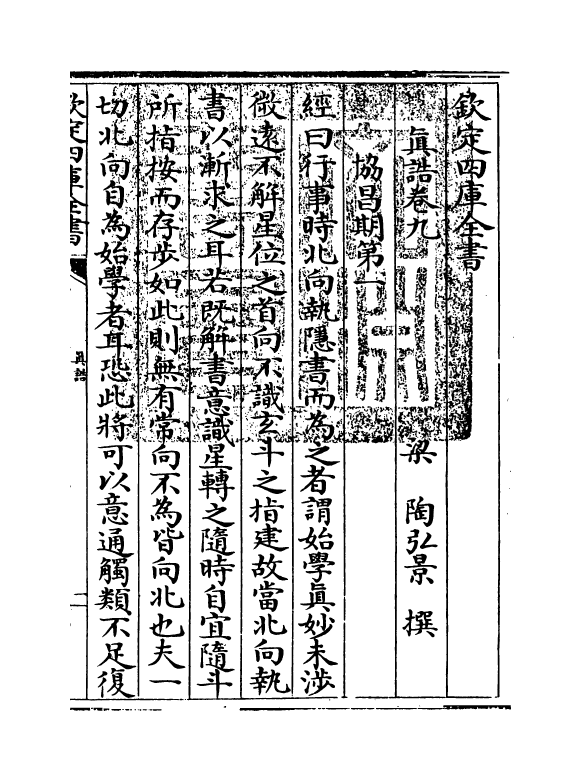 欽定四庫全書
真誥卷九
梁 陶弘景 撰
協昌期第一
經曰行事時北向執隱書而為之者謂始學真妙未涉
微逺不解星位之首向不識玄斗之指建故當北向執
書以漸求之耳若既解書意識星轉之隨時自宜隨斗
所指按而存步如此則無有常向不為皆向北也夫一
切北向自為始學者耳恐此將可以意通觸類不足復
欽定四庫全書
真誥